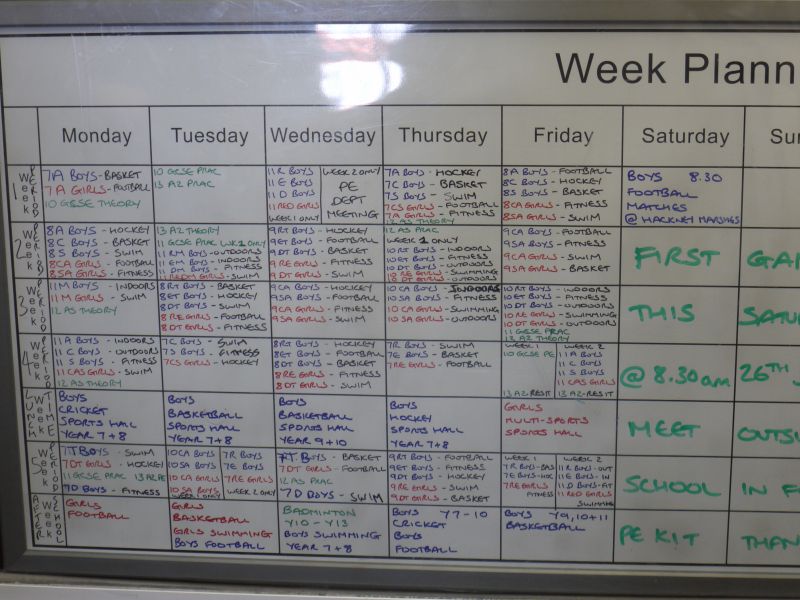 Week Plann
Monday Tuesday Wednesday Thursday Friday Saturday Su
7A BOYS - BASKET
7A GIRLS - FOOTBALL
10 GCSE THEORY
10 GCSE PRAC
13 A2 PRAC
11 R BOYS
11 E BOYS
11 D BOYS
11 RED GIRLS
WEEK 1 ONLY
WEEK 2 ONLY
PE
DEPT
MEETING
7A BOYS - HOCKEY
7C BOYS - BASKET
7S BOYS - SWIM
7CS GIRLS - FOOTBALL
7A GIRLS - FITNESS
12 AS THEORY
8A BOYS - FOOTBALL
8C BOYS - HOCKEY
8S BOYS - BASKET
8CA GIRLS - FITNESS
8SA GIRLS - SWIM
BOYS 8.30
FOOTBALL
MATCHES
@ HACKNEY MARSHES
8A BOYS - HOCKEY
8C BOYS - BASKET
8S BOYS - SWIM
8CA GIRLS - FOOTBALL
8SA GIRLS - FITNESS
13 A2 THEORY
11 GCSE PRAC WK 1 ONLY
11 RM BOYS - OUTDOORS
11 EM BOYS - INDOORS
11 DM BOYS - FITNESS
11 REDM GIRLS - SWIM
9RT BOYS - HOCKEY
9ET BOYS - FOOTBALL
9DT BOYS - BASKET
9RE GIRLS - FITNESS
9DT GIRLS - SWIM
12 AS PRAC
WEEK 1 ONLY
10 RT BOYS - INDOORS
10 ET BOYS - FITNESS
10 DT BOYS - OUTDOORS
10 RE GIRLS - SWIMMING
10 DT GIRLS - OUTDOORS
9CA BOYS - FOOTBALL
9SA BOYS - FITNESS
9CA GIRLS - SWIM
9SA GIRLS - BASKET
FIRST GA
11 M BOYS - INDOORS
11 M GIRLS - SWIM
12 AS THEORY
8RT BOYS - BASKET
8ET BOYS - HOCKEY
8DT BOYS - SWIM
8RE GIRLS - FOOTBALL
8DT GIRLS - FITNESS
9CA BOYS - HOCKEY
9SA BOYS - FOOTBALL
9CA GIRLS - FITNESS
9SA GIRLS - SWIM
10 CA BOYS - INDOORS
10 SA BOYS - FITNESS
10 CA GIRLS - SWIMMING
10 SA GIRLS - OUTDOORS
10 RT BOYS - INDOORS
10 ET BOYS - FITNESS
10 DT BOYS - OUTDOORS
10 RE GIRLS - SWIMMING
10 DT GIRLS - OUTDOORS
11 GCSE PRAC
13 A2 THEORY
THIS SATU
11 A BOYS - INDOORS
11 C BOYS - OUTDOORS
11 S BOYS - FITNESS
11 CAS GIRLS - SWIM
12 AS THEORY
7C BOYS - SWIM
7S BOYS - FITNESS
7CS GIRLS - HOCKEY
8RT BOYS - HOCKEY
8ET BOYS - FOOTBALL
8DT BOYS - BASKET
8RE GIRLS - FITNESS
8DT GIRLS - SWIM
7R BOYS - SWIM
7E BOYS - BASKET
7RE GIRLS - FOOTBALL
WEEK 1
10 GCSE PE
13 A2 RESIT
WEEK 2
11 A BOYS
11 C BOYS
11 S BOYS
11 CAS GIRLS
13 A2 RESIT
@ 8.30am 26TH
LUNCH TIME
BOYS
CRICKET
SPORTS HALL
YEAR 7+8
BOYS
BASKETBALL
SPORTS HALL
YEAR 7+8
BOYS
BASKETBALL
SPORTS HALL
YEAR 9+10
BOYS
HOCKEY
SPORTS HALL
YEAR 7+8
GIRLS
MULTI-SPORTS
SPORTS HALL
MEET OUTSI
7T BOYS - SWIM
7DT GIRLS - HOCKEY
11 GCSE PRAC 13 A2 PE
7D BOYS - FITNESS
10CA BOYS
10SA BOYS
10 CA GIRLS
10 SA BOYS
WEEK 1 ONLY
7R BOYS
7E BOYS
7RE GIRLS
WEEK 2 ONLY
7T BOYS - BASKET
7DT GIRLS - FOOTBALL
12 AS PRAC
7D BOYS - SWIM
9RT BOYS - FOOTBALL
9ET BOYS - FITNESS
9DT BOYS - HOCKEY
9RE GIRLS - SWIM
9DT GIRLS - BASKET
WEEK 1
7R BOYS - BAS
7E BOYS - HOC
7RE GIRLS
FITNESS
WEEK 2
11R BOYS - OUT
11E BOYS - IN
11 D BOYS - FIT
11 RED GIRLS
SWIMMING
SCHOOL IN F
AFTER SCHOOL
GIRLS
FOOTBALL
GIRLS
BASKETBALL
GIRLS SWIMMING
BOYS FOOTBALL
BADMINTON
Y10 - Y13
BOYS SWIMMING
YEAR 7+8
BOYS Y7-10
CRICKET
BOYS
FOOTBALL
BOYS Y9,10+11
BASKETBALL
PE KIT THAN